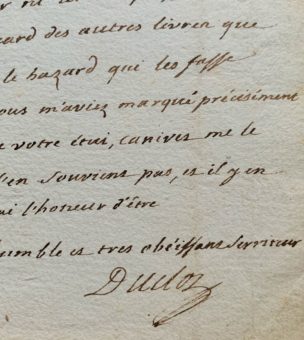 ard des autres livres que
le hazard qui les fasse
ous m'aviez marqué précisément
e votre étui, canivet me le
'en souviens pas, et il y en
ai l'honeur d'être
umble et tres obéissant serviteur
Duclos